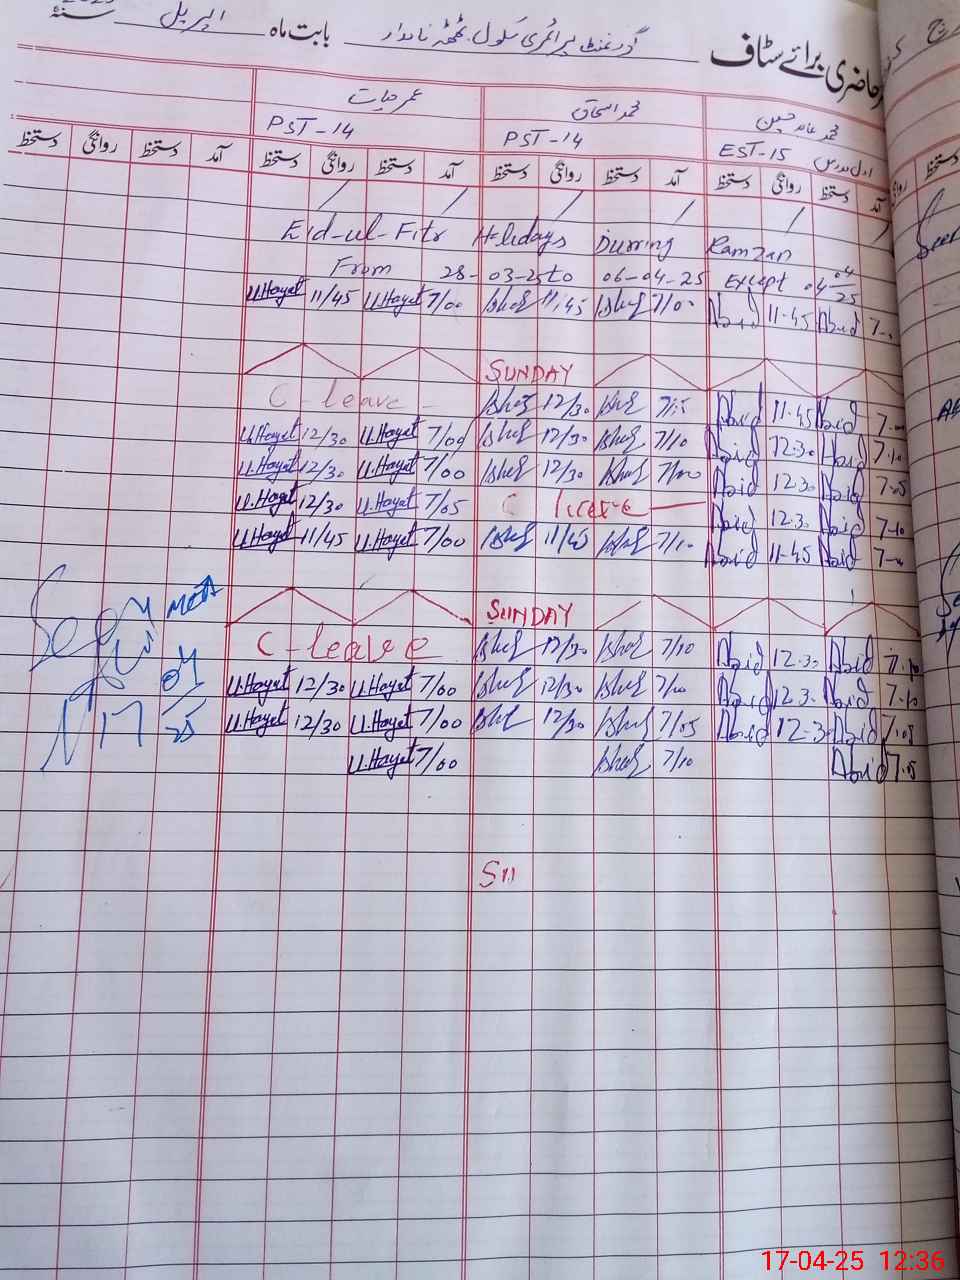 حاضری برائے سٹاف گورنمنٹ پرائمری سکول ٹھٹھہ نامدار بابت ماہ اپریل سنہ
محمد عابد حسین محمد اسحاق عمر حیات
اول مدرس EST-15 PST-14 PST-14
آمد دستخط روانگی دستخط آمد دستخط روانگی دستخط آمد دستخط روانگی دستخط آمد دستخط روانگی دستخط
Eid-ul-Fitr Holidays Durring Ramzan
From 28-03-25 to 06-04-25 Except 04/04/25
U.Hayat 11/45 U.Hayat 7/00 Ishaq 11/45 Ishaq 7/00 Abid 11-45 Abid
SUNDAY
C-leave Ishaq 12/30 Ishaq Abid 11-45 Abid
U.Hayat 12/30 U.Hayat 7/00 Ishaq 12/30 Ishaq 7/10 Abid 12.30 Abid 7.10
U.Hayat 12/30 U.Hayat 7/00 Ishaq 12/30 Ishaq 7/00 Abid 12.30 Abid 7.05
U.Hayat 12/30 U.Hayat 7/05 C leave Abid 12.30 Abid 7-10
U.Hayat 11/45 U.Hayat 7/00 Ishaq 11/45 Ishaq 7/10 Abid 11-45 Abid
SUNDAY
C-leave Ishaq 12/30 Ishaq 7/10 Abid 12.30 Abid 7.10
U.Hayat 12/30 U.Hayat 7/00 Ishaq 12/30 Ishaq 7/00 Abid 12.30 Abid 7.10
U.Hayat 12/30 U.Hayat 7/00 Ishaq 12/30 Ishaq 7/05 Abid 12.30 Abid 7.05
U.Hayat 7/00 Ishaq 7/10 Abid 7.05
Seen
17/04/25
Su
17-04-25 12:36